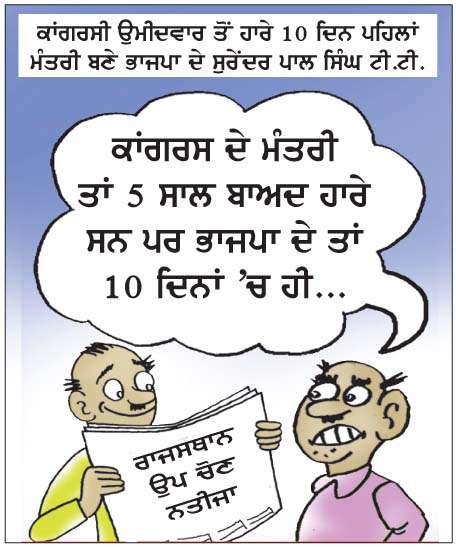 ਕਾਂਗਰਸੀ ਉਮੀਦਵਾਰ ਤੋਂ ਹਾਰੇ 10 ਦਿਨ ਪਹਿਲਾਂ
ਮੰਤਰੀ ਬਣੇ ਭਾਜਪਾ ਦੇ ਸੁਰੇਂਦਰ ਪਾਲ ਸਿੰਘ ਟੀ.ਟੀ.
ਕਾਂਗਰਸ ਦੇ ਮੰਤਰੀ
ਤਾਂ 5 ਸਾਲ ਬਾਅਦ ਹਾਰੇ
ਸਨ ਪਰ ਭਾਜਪਾ ਦੇ ਤਾਂ
10 ਦਿਨਾਂ ’ਚ ਹੀ...
ਰਾਜਸਥਾਨ
ਉਪ ਚੋਣ
ਨਤੀਜਾ